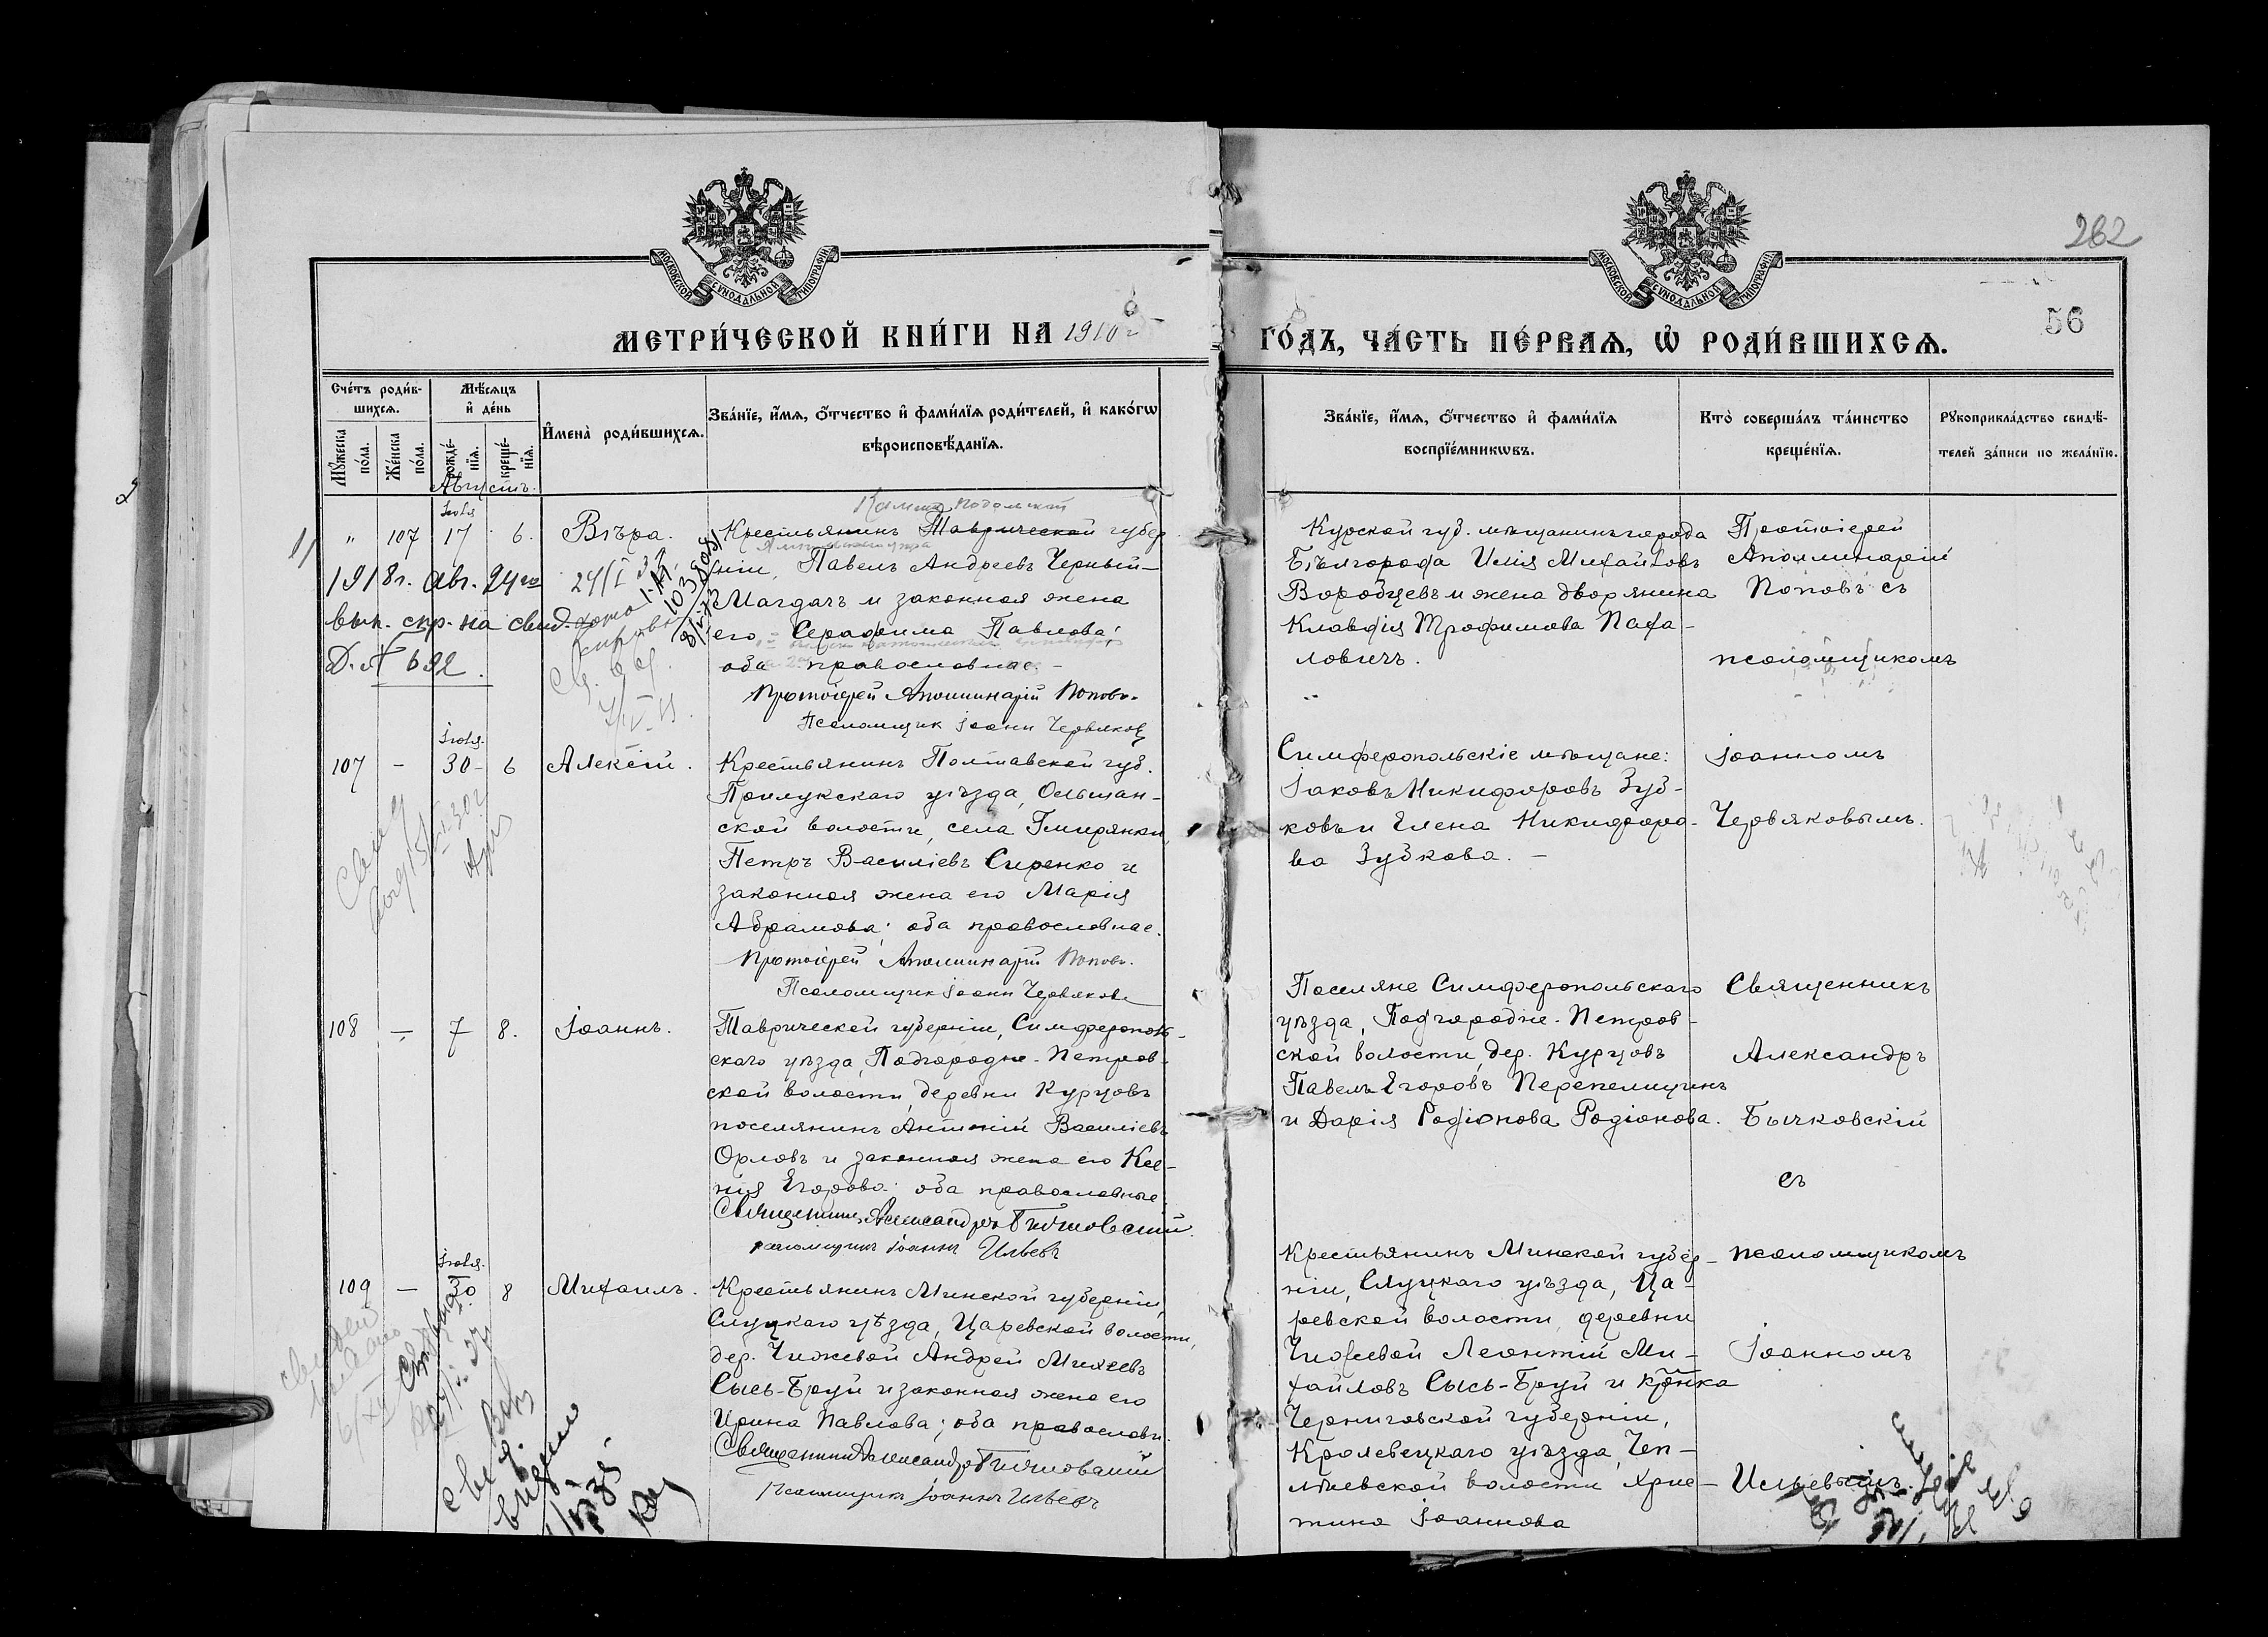 262
МОСКОВСКОЙ СѴНОДАЛЬНОЙ ТИПОГРАФІИ
МОСКОВСКОЙ СѴНОДАЛЬНОЙ ТИПОГРАФІИ
56
МЕТРИ́ЧЕСКОЙ КНИ́ГИ НА 1910 г
ГО́ДЪ, ЧА́СТЬ ПЕ́РВАѦ, Ѡ҆ РОДИ́ВШИХСѦ.
Сче́тъ роди́в-
шихсѧ.
Мꙋ́жеска
по́ла.
Же́нска
по́ла.
Мѣ́сѧцъ
и҆ де́нь
рожде́-
нїѧ.
креще́-
нїѧ.
И҆мена̀ роди́вшихсѧ.
Зва́нїе, и҆́мѧ, ѻ҆́тчество и҆ фами́лїѧ роди́телей, и҆ како́гѡ
вѣроисповѣ́данїѧ.
Зва́нїе, и҆́мѧ, ѻ҆́тчество и҆ фами́лїѧ
воспрїе́мникѡвъ.
Кто̀ соверша́лъ та́инство
креще́нїѧ.
Рꙋкоприкла́дство свидѣ́-
телей за́писи по жела́нїю.
Августъ.
Іюля
" 107 17 6. Вѣра.
Подольской
Крестьянинъ Таврической губер
ніи, Павелъ Андреевъ Черный-
Магдачъ и законная жена
его Серафима Павлова;
оба православные.-
Протоіерей Аполлинарій Поповъ.
Псаломщик Іоанн Червяков
1918 г. авг. 24го
вып. спр. на свид.
Д. № 692.
Курской губ. мѣщанинъ города
Бѣлгорода Илія Михайловъ
Воробцевъ и жена дворянина
Клавдія Трофимова Паха-
ловичъ.
Протоіерей
Аполлинарій
Поповъ съ
псаломщикомъ
Іоанномъ
Червяковымъ.
Іюля.
107 - 30 - 6 Алексій.
Крестьянинъ Полтавской губ.
Прилукскаго уѣзда, Ольшан-
ской волости, села Гмирянки,
Петръ Василіевъ Сиренко и
законная жена его Марія
Абрамова; оба православные.
Протоіерей Аполлинарій Поповъ.
Псаломщик Іоанн Червяковъ
Симферопольскіе мѣщане:
Іаковъ Никифоровъ Зуб-
ковъ и Елена Никифоро-
ва Зубкова. -
108 - 7 8. Іоаннъ.
Таврической губерніи, Симферополь-
скаго уѣзда, Подгородне-Петров-
ской волости, деревни Курцовъ
поселянинъ Антоній Василіевъ
Орловъ и законная жена его Ксе-
нія Егорова; оба православные.
Священникъ Александръ Бычковскій.
псаломщикъ Іоаннъ Ильевъ
Поселяне Симферопольскаго
уѣзда, Подгородне-Петров-
ской волости, дер. Курцовъ
Павелъ Егоровъ Перепелицинъ
и Дарія Родіонова Родіонова.
Священникъ
Александръ
Бычковскій
съ
псаломщикомъ
Іоанномъ
Ильевымъ.
Іюля.
109 - 30 8 Михаилъ.
Крестьянинъ Минской губерніи,
Слуцкаго уѣзда, Царевской волости,
дер. Чижевой Андрей Михеевъ
Сысь-Бруй и законная жена его
Ирина Павлова; оба православн.
Священникъ Александръ Бычковскій
Псаломщикъ Іоаннъ Ильевъ
Крестьянинъ Минской губер-
ніи, Слуцкаго уѣзда, Ца-
ревской волости, деревни
Чижевой Леонтій Ми-
хайловъ Сысь-Бруй и кр-нка
Черниговской губерніи,
Кролевецкаго уѣзда, Чеп-
лѣевской волости Хрис-
тина Іоаннова